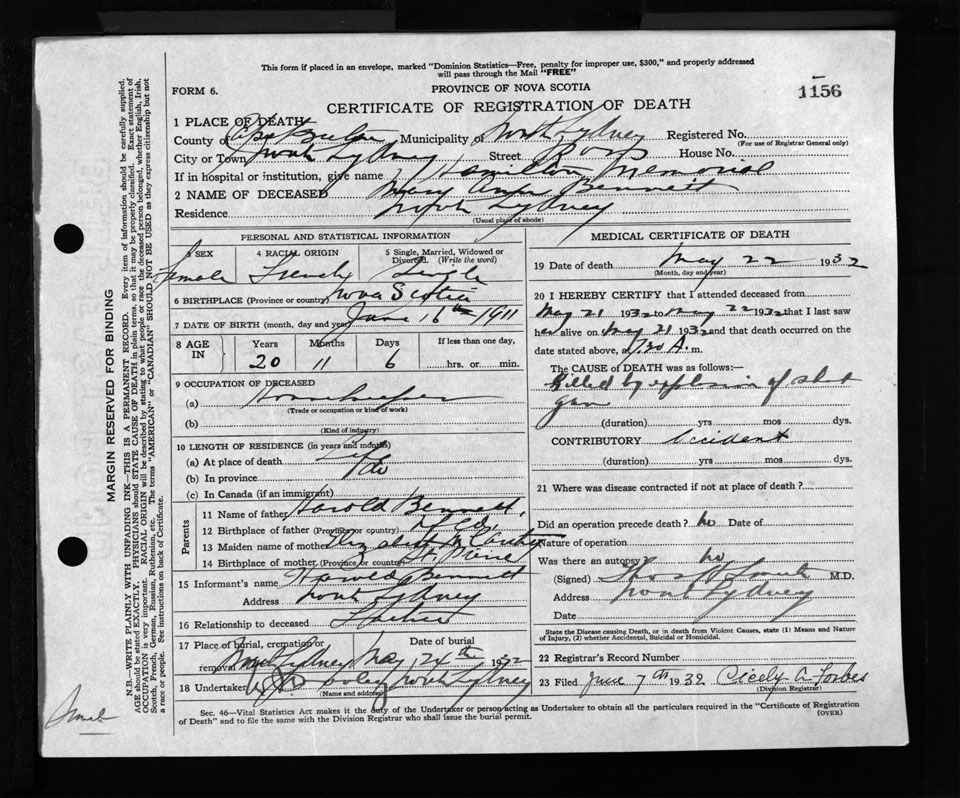 This form if placed in an envelope, marked "Dominion Statistics—Free, penalty for improper use, $300," and properly addressed
will pass through the Mail "FREE"
FORM 6.
PROVINCE OF NOVA SCOTIA
1156
CERTIFICATE OF REGISTRATION OF DEATH
1 PLACE OF DEATH
County of Cape Breton Municipality of North Sydney Registered No.
(For use of Registrar General only)
City or Town North Sydney Street Ross House No.
If in hospital or institution, give name Hamilton Memorial
2 NAME OF DECEASED Mary Ann Bennett
Residence North Sydney
(Usual place of abode)
PERSONAL AND STATISTICAL INFORMATION
3 SEX
Female
4 RACIAL ORIGIN
French
5 Single, Married, Widowed or
Divorced. (Write the word)
Single
6 BIRTHPLACE (Province or country) Nova Scotia
7 DATE OF BIRTH (month, day and year) June 16th 1911
8 AGE IN
Years Months Days If less than one day,
20 11 6 hrs. or min.
9 OCCUPATION OF DECEASED
(a) Housekeeper
(Trade or occupation or kind of work)
(b)
(Kind of industry)
10 LENGTH OF RESIDENCE (in years and months)
(a) At place of death Life
(b) In province do
(c) In Canada (if an immigrant)
Parents
11 Name of father Harold Bennett
12 Birthplace of father (Province or country) Nfld.
13 Maiden name of mother Elizabeth
14 Birthplace of mother (Province or country) St Pierre
15 Informant's name Harold Bennett
Address North Sydney
16 Relationship to deceased Father
17 Place of burial, cremation or
removal North Sydney
Date of burial
May 24th 1932
18 Undertaker North Sydney
(Name and address)
MEDICAL CERTIFICATE OF DEATH
19 Date of death May 22 1932
(Month, day and year)
20 I HEREBY CERTIFY that I attended deceased from
May 21 1932 to May 22 1932 that I last saw
her alive on May 21 1932 and that death occurred on
the date stated above, at 7.30 A. m.
The CAUSE of DEATH was as follows:—
Killed by explosion of shot
gun
(duration) yrs mos dys.
CONTRIBUTORY Accident
(duration) yrs mos dys.
21 Where was disease contracted if not at place of death?
Did an operation precede death? no Date of
Nature of operation
Was there an autopsy no
(Signed) M.D.
Address North Sydney
Date
State the Disease causing Death, or in death from Violent Causes, state (1) Means and Nature
of Injury, (2) whether Accidental, Suicidal or Homicidal.
22 Registrar's Record Number
23 Filed June 7th 1932 Cicely A. Forbes
(Division Registrar)
Sec. 46—Vital Statistics Act makes it the duty of the Undertaker or person acting as Undertaker to obtain all the particulars required in the "Certificate of Registration
of Death" and to file the same with the Division Registrar who shall issue the burial permit.
(OVER)
MARGIN RESERVED FOR BINDING
N.B.—WRITE PLAINLY WITH UNFADING INK—THIS IS A PERMANENT RECORD. Every item of information should be carefully supplied.
AGE should be stated EXACTLY. PHYSICIANS should STATE CAUSE OF DEATH in plain terms, so that it may be properly classified. Exact statement of
OCCUPATION is very important. RACIAL ORIGIN will be described by stating to what people or race the deceased person belonged, whether English, Irish,
Scotch, French, German, Russian, Ruthenian, etc. The terms "AMERICAN" or "CANADIAN" SHOULD NOT BE USED as they express citizenship but not
a race or people. See instructions on back of Certificate.